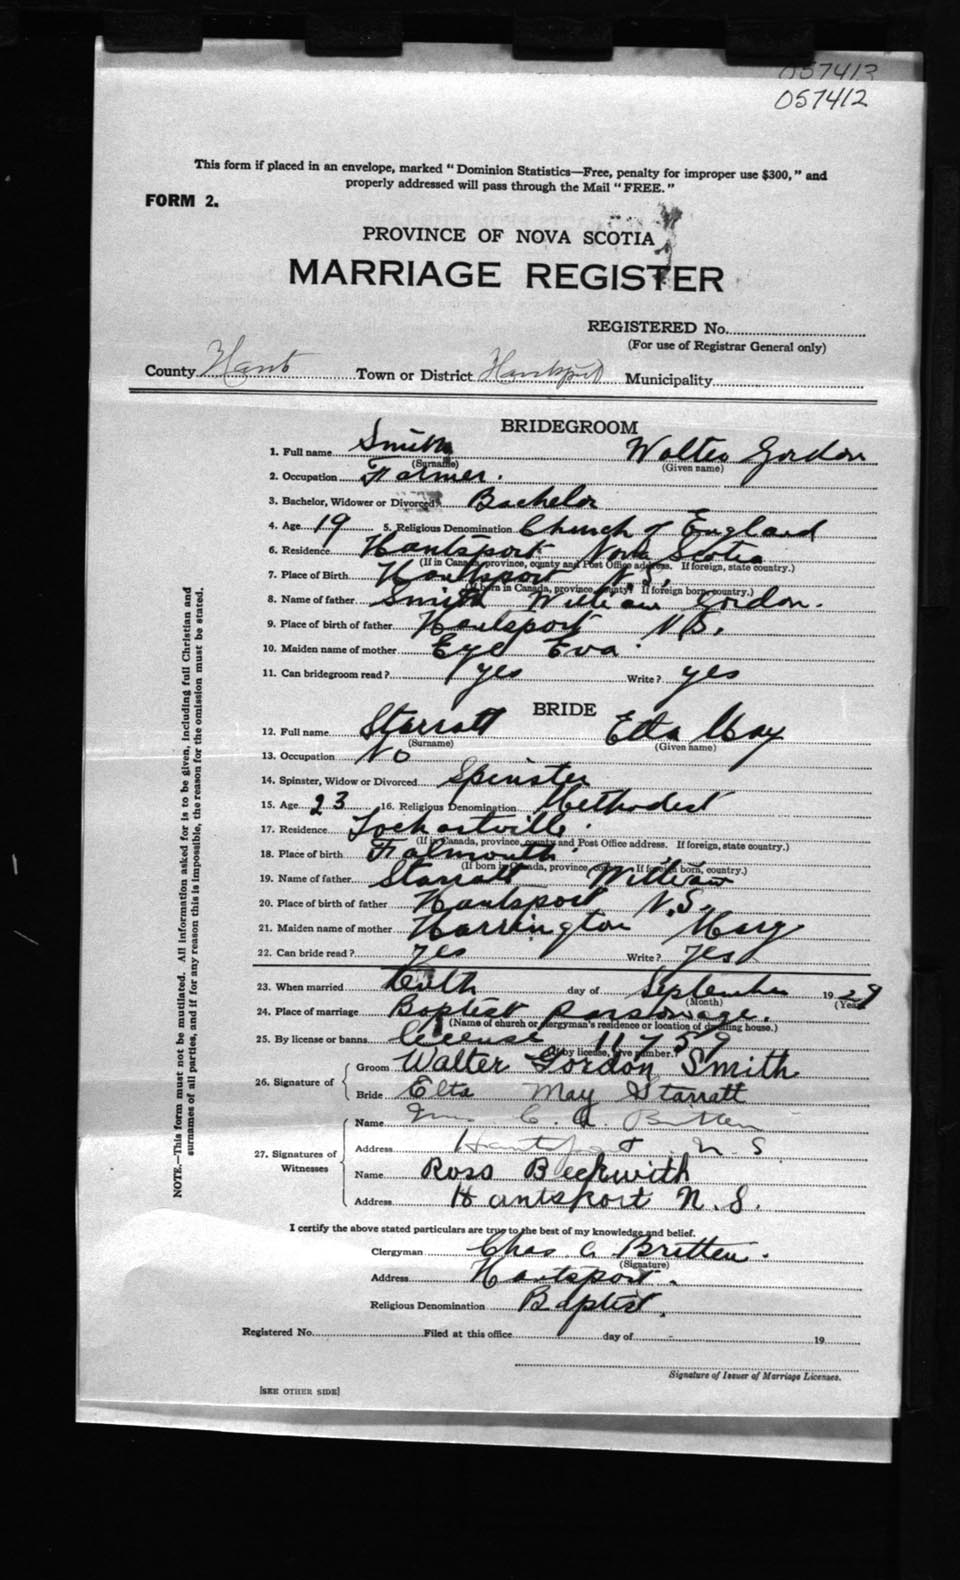 057413
057412
This form if placed in an envelope, marked "Dominion Statistics—Free, penalty for improper use $300," and
properly addressed will pass through the Mail "FREE."
FORM 2.
PROVINCE OF NOVA SCOTIA
MARRIAGE REGISTER
REGISTERED No.
(For use of Registrar General only)
County Hants Town or District Hantsport Municipality
BRIDEGROOM
1. Full name Smith Walter Gordon
(Surname) (Given name)
2. Occupation Farmer.
3. Bachelor, Widower or Divorced Bachelor
4. Age 19 5. Religious Denomination Church of England
6. Residence Hantsport Nova Scotia
(If in Canada, province, county and Post Office address. If foreign, state country.)
7. Place of Birth Hantsport N.S.
(If born in Canada, province, county. If foreign born, country.)
8. Name of father Smith William Gordon.
9. Place of birth of father Hantsport N.S.
10. Maiden name of mother Eye Eva
11. Can bridegroom read? yes Write? yes
BRIDE
12. Full name Starratt Elta May
(Surname) (Given name)
13. Occupation No
14. Spinster, Widow or Divorced Spinster
15. Age 23 16. Religious Denomination Methodist
17. Residence Lockartville
(If in Canada, province, county and Post Office address. If foreign, state country.)
18. Place of birth Falmouth
(If born in Canada, province, county. If foreign born, country.)
19. Name of father Starratt William
20. Place of birth of father Hantsport N.S.
21. Maiden name of mother Harrington Mary
22. Can bride read? yes Write? yes
23. When married day of September 1929
(Month) (Year)
24. Place of marriage Baptist Parsonage.
(Name of church or clergyman's residence or location of dwelling house.)
25. By license or banns license 11759
(If by license, give number.)
26. Signature of Groom Walter Gordon Smith
Bride Elta May Starratt
27. Signatures of Witnesses Name Mrs C. A. Britten
Address Hantsport N.S.
Name Ross Beckwith
Address Hantsport N.S.
I certify the above stated particulars are true to the best of my knowledge and belief.
Clergyman Chas. A Britten.
(Signature)
Address Hantsport.
Religious Denomination Baptist.
Registered No. Filed at this office day of 19
Signature of Issuer of Marriage Licenses.
[SEE OTHER SIDE]
NOTE.—This form must not be mutilated. All information asked for is to be given, including full Christian and
surnames of all parties, and if for any reason this is impossible, the reason for the omission must be stated.